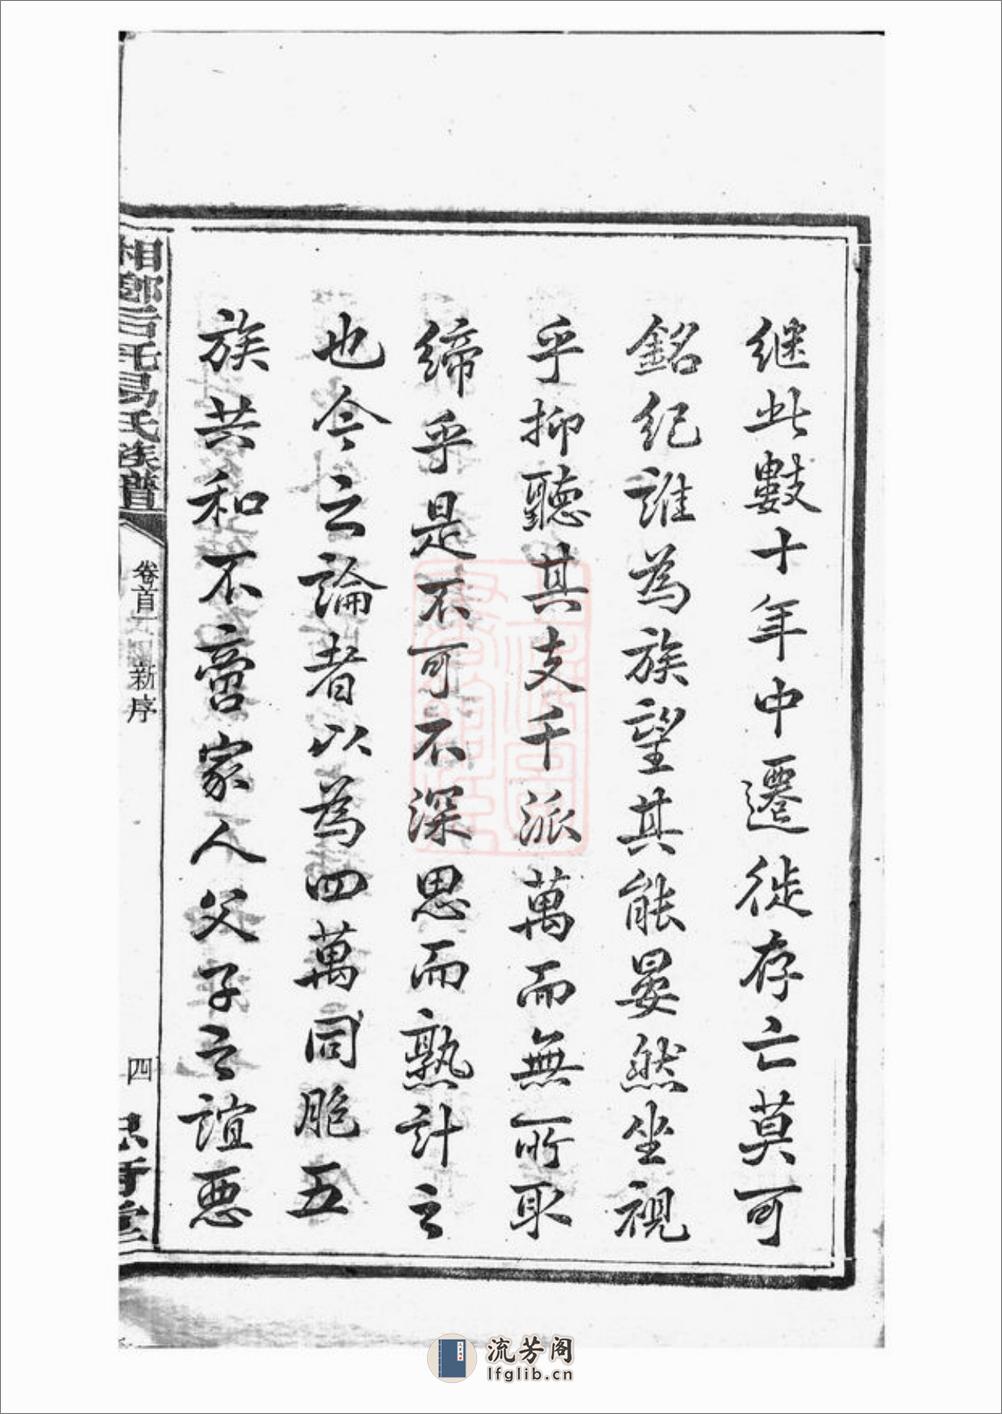 継此數十年中遷徙存亡莫可
銘紀誰為族望其能晏然坐視
乎抑聽其支千派萬而無所取
締乎是不可不深思而熟計之
也今之論者以為四萬同胞五
族共和不啻家人父子之誼惡
易氏族譜
卷首 新序
四
流芳阁
lfglib.cn